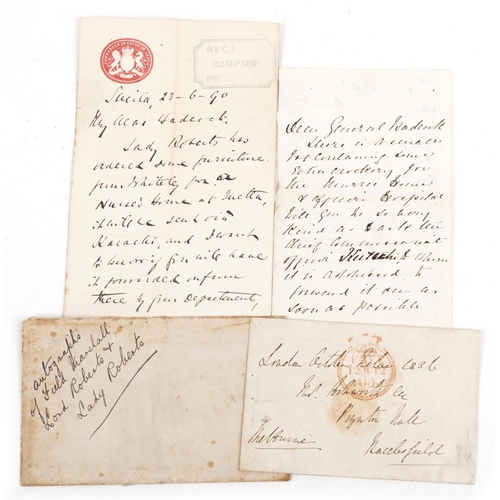 REC
12 SEP 1910
Simla, 23-6-90
My dear Badcock,
Lady Roberts has
ordered some furniture
from Whiteley for a
Nurse's Home at Quetta,
it will be sent via
Karachi, and I want
to know if you will have
it forwarded on from
there by your Department,
Dear General Badcock
There is a
containing some
crockery for
the Murree Home
& Hospital
Will you be so very
kind as to ask the
chief Commissariat
officer where
it is addressed to
forward it on as
soon as possible
autographs
of Field Marshall
Lord Roberts &
Lady Roberts
London October 1836
Ashworth
Poynton Hall
Melbourne Macclesfield